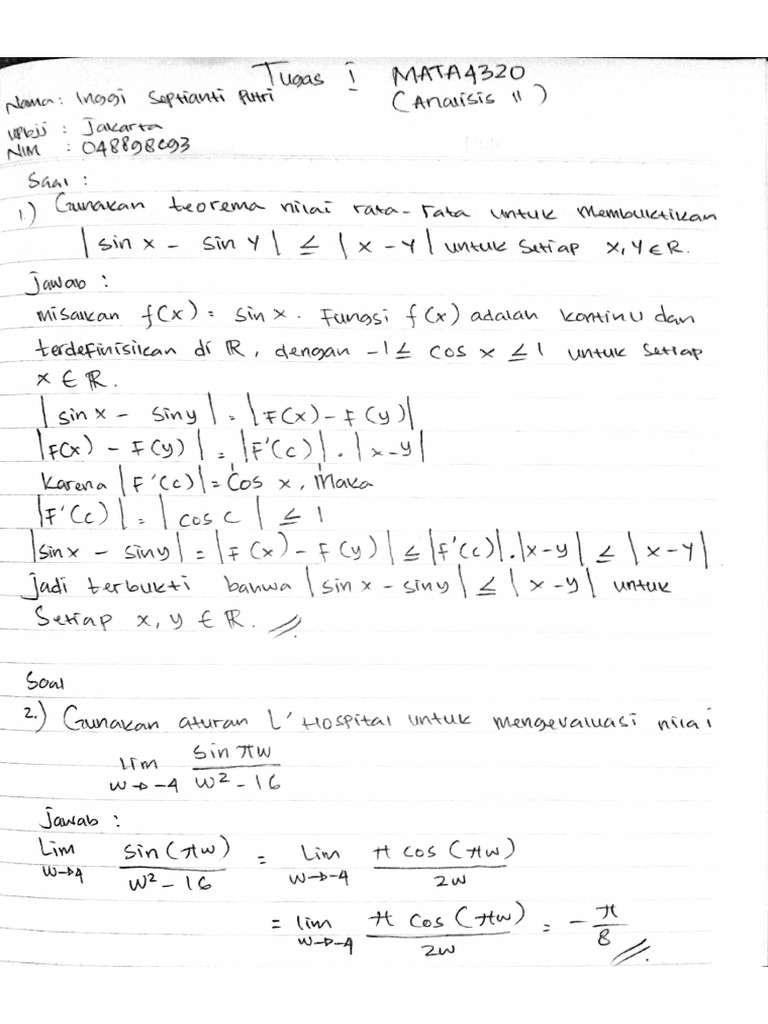 Tugas 1 MATA4320
Nama: Inggi Septianti Putri (Analisis II)
UPBJJ : Jakarta
NIM : 048898693
Soal :
1.) Gunakan teorema nilai rata-rata untuk membuktikan
|sin x - sin y| ≤ |x - y| untuk setiap x, y ∈ R.
Jawab :
misalkan f(x) = sin x. Fungsi f(x) adalah kontinu dan
terdefinisikan di ℝ, dengan -1 ≤ cos x ≤ 1 untuk setiap
x ∈ ℝ.
|sin x - sin y| = |F(x) - F(y)|
|F(x) - F(y)| = |F'(c)| . |x-y|
Karena |F'(c)| = Cos x, Maka
|F'(c)| = |cos c| ≤ 1
|sin x - sin y| = |F(x) - F(y)| ≤ |f'(c)|.|x-y| ≤ |x-y|
Jadi terbukti bahwa |sin x - sin y| ≤ |x-y| untuk
Setiap x, y ∈ ℝ.
Soal
2.) Gunakan aturan L'Hospital untuk mengevaluasi nilai
lim w→-4 sin πw / w² - 16
Jawab :
Lim w→4 sin(πw) / w² - 16 = Lim w→-4 π cos(πw) / 2w
= lim w→-4 π cos(πw) / 2w = - π/8